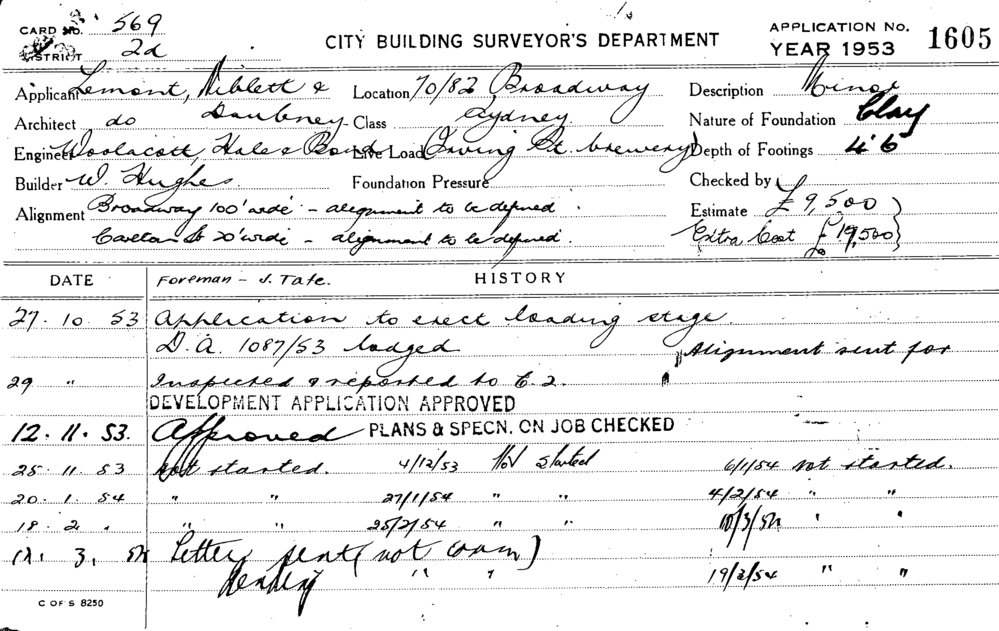 CARD No. 569
DISTRICT 2d
CITY BUILDING SURVEYOR'S DEPARTMENT
APPLICATION No. 1605
YEAR 1953
Applicant Lemont, Niblett & Location 70/82 Broadway Description Minor
Architect do Daubney Class Sydney Nature of Foundation Clay
Engineer Woolacott, Hale & Bond Live Load (Irving St. brewery) Depth of Footings 4'6
Builder W. Hughes. Foundation Pressure Checked by
Alignment Broadway 100' wide - alignment to be defined. Estimate £9,500
Carlton St 20' wide - alignment to be defined. Extra Cost £19,500
DATE Foreman - J. Tate. HISTORY
27. 10. 53 Application to erect loading stage.
D.A. 1087/53 lodged Alignment sent for
29 " Inspected & reported to E.2.
DEVELOPMENT APPLICATION APPROVED
12. 11. 53. Approved PLANS & SPECN. ON JOB CHECKED
25. 11. 53 Not started. 4/12/53 Not started 6/1/54 not started.
20. 1. 54 " " 27/1/54 " " 4/2/54 " "
18. 2. " " " 25/2/54 " " 10/3/54 " "
3. 54 Letter sent (not comm)
" " 19/3/54 " "
C OF S 8250